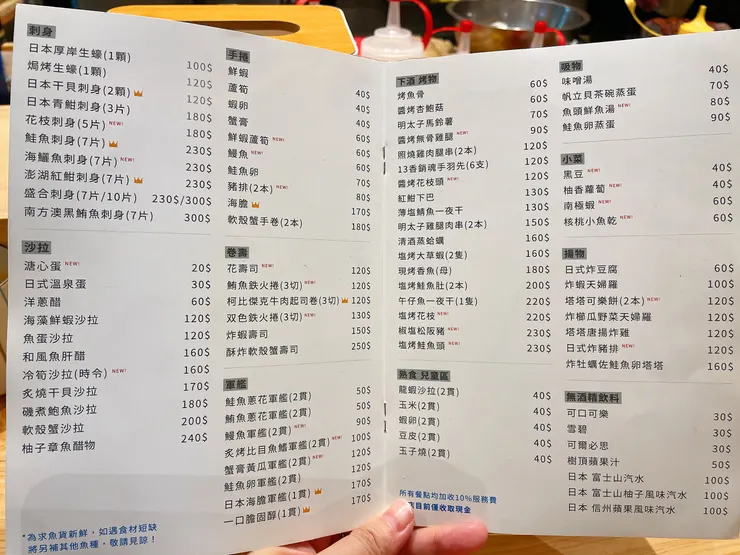 刺身
日本厚岸生蠔(1顆) 100$
焗烤生蠔(1顆) 120$
日本干貝刺身(2顆) 120$
日本青魽刺身(3片) 180$
花枝刺身(5片) NEW! 230$
鮭魚刺身(7片) 230$
海鱺魚刺身(7片) NEW! 230$
澎湖紅魽刺身(7片) 230$
盛合刺身(7片/10片) 230$/300$
南方澳黑鮪魚刺身(7片) 300$
沙拉
溏心蛋 NEW! 20$
日式溫泉蛋 30$
洋蔥醋 60$
海藻鮮蝦沙拉 120$
魚蛋沙拉 120$
和風魚肝醋 160$
冷筍沙拉(時令) NEW! 160$
炙燒干貝沙拉 170$
磯煮鮑魚沙拉 180$
軟殼蟹沙拉 200$
柚子章魚醋物 240$
*為求魚貨新鮮，如遇食材短缺
將另補其他魚種，敬請見諒！
手捲
鮮蝦 40$
蘆筍 40$
蝦卵 40$
蟹膏 40$
鮮蝦蘆筍 NEW! 60$
鰻魚 NEW! 50$
鮭魚卵 50$
豬排(2本) NEW! 70$
海膽 170$
軟殼蟹手卷(2本) 180$
卷壽
花壽司 NEW! 120$
鮪魚鉄火捲(3切) NEW! 120$
柯比傑克牛肉起司卷(3切) 120$
双色鉄火捲(3切) NEW! 130$
炸蝦壽司 150$
酥炸軟殼蟹壽司 250$
軍艦
鮭魚蔥花軍艦(2貫) 50$
鮪魚蔥花軍艦(2貫) 50$
鰻魚軍艦(2貫) NEW! 90$
炙烤比目魚鰭軍艦(2貫) NEW! 100$
蟹膏黃瓜軍艦(2貫) NEW! 120$
鮭魚卵軍艦(2貫) 120$
日本海膽軍艦(1貫) 170$
一口膽固醇(1貫) 170$
下酒 烤物
烤魚骨 60$
醬烤杏鮑菇 70$
明太子馬鈴薯 90$
醬烤無骨雞腿 NEW! 90$
照燒雞肉腿串(2本) 120$
13香銷魂手羽先(6支) 120$
醬烤花枝頭 NEW! 120$
紅魽下巴 130$
薄塩鯖魚一夜干 130$
明太子雞腿肉串(2本) 150$
清酒蒸蛤蠣 160$
塩烤大草蝦(2隻) 160$
現烤香魚(母) 180$
塩烤鮭魚肚(2本) 200$
午仔魚一夜干(1隻) 220$
塩烤花枝 NEW! 220$
椒塩松阪豬 NEW! 230$
塩烤鮭魚頭 NEW! 230$
熟食 兒童區
龍蝦沙拉(2貫) 40$
玉米(2貫) 40$
蝦卵(2貫) 40$
豆皮(2貫) 40$
玉子燒(2貫) 40$
所有餐點均加收10%服務費
目前僅收取現金
吸物
味噌湯 40$
帆立貝茶碗蒸蛋 70$
魚頭鮮魚湯 NEW! 80$
鮭魚卵蒸蛋 90$
小菜
黑豆 NEW! 40$
柚香蘿蔔 NEW! 40$
南極蝦 NEW! 60$
核桃小魚乾 NEW! 60$
揚物
日式炸豆腐 60$
炸蝦天婦羅 100$
塔塔可樂餅(2本) NEW! 120$
炸櫛瓜野菜天婦羅 120$
塔塔唐揚炸雞 120$
日式炸豬排 NEW! 120$
炸牡蠣佐鮭魚卵塔塔 160$
無酒精飲料
可口可樂 30$
雪碧 30$
可爾必思 30$
樹頂蘋果汁 50$
日本 富士山汽水 100$
日本 富士山柚子風味汽水 100$
日本 信州蘋果風味汽水 100$